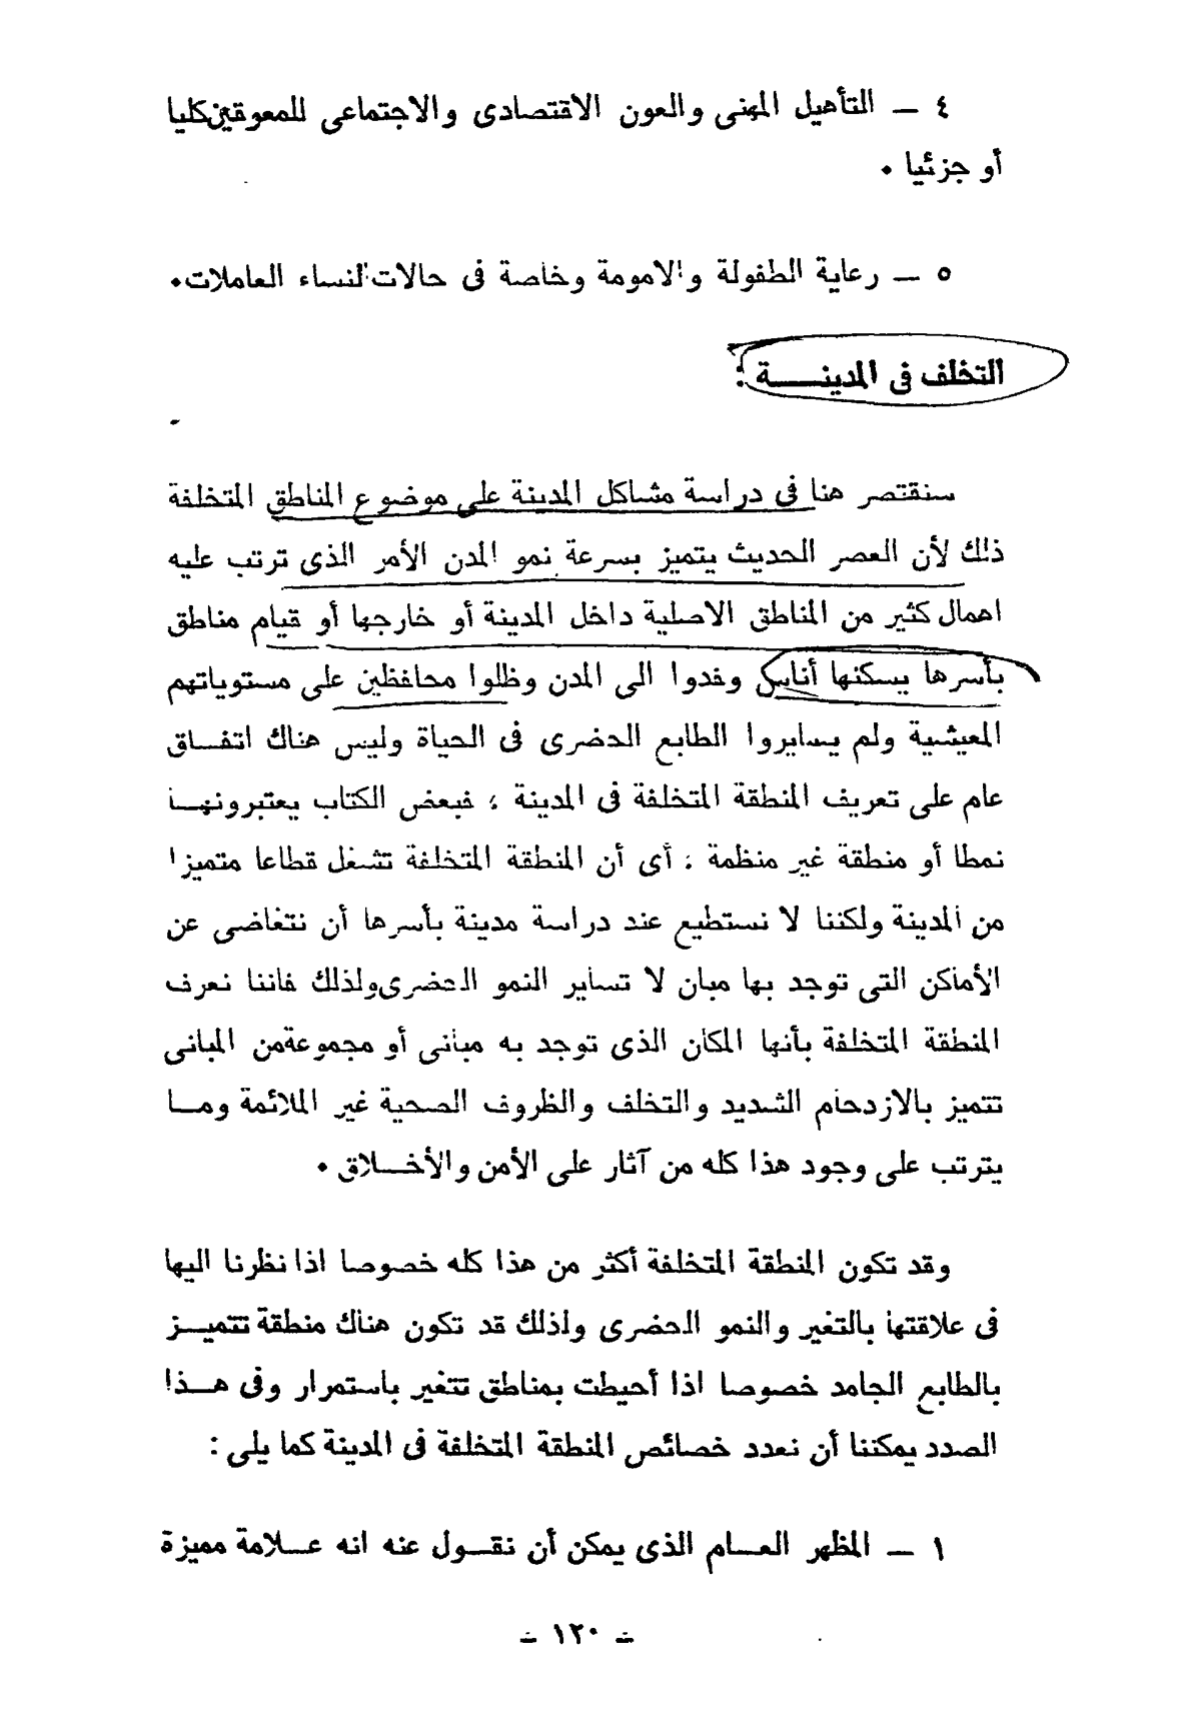 ٤ ــ التأهيل المهنى والعون الاقتصادى والاجتماعى للمعوقين كليا
أو جزئيا ٠
٥ ــ رعاية الطفولة والامومة وخاصة فى حالات النساء العاملات ٠
التخلف فى المدينـــــة :
سنقتصر هنا فى دراسة مشاكل المدينة على موضوع المناطق المتخلفة
ذلك لأن العصر الحديث يتميز بسرعة نمو المدن الأمر الذى ترتب عليه
اهمال كثير من المناطق الاصلية داخل المدينة أو خارجها أو قيام مناطق
بأسرها يسكنها أناس وفدوا الى المدن وظلوا محافظين على مستوياتهم
المعيشية ولم يسايروا الطابع الحضرى فى الحياة وليس هناك اتفــاق
عام على تعريف المنطقة المتخلفة فى المدينة ، فبعض الكتاب يعتبرونهــا
نمطا أو منطقة غير منظمة ، أى أن المنطقة المتخلفة تشغل قطاعا متميزا
من المدينة ولكننا لا نستطيع عند دراسة مدينة بأسرها أن نتغاضى عن
الأماكن التى توجد بها مبان لا تساير النمو الحضرى ولذلك فاننا نعرف
المنطقة المتخلفة بأنها المكان الذى توجد به مبانى أو مجموعة من المبانى
تتميز بالازدحام الشديد والتخلف والظروف الصحية غير الملائمة ومــا
يترتب على وجود هذا كله من آثار على الأمن والأخــلاق ٠
وقد تكون المنطقة المتخلفة أكثر من هذا كله خصوصا اذا نظرنا اليها
فى علاقتها بالتغير والنمو الحضرى ولذلك قد تكون هناك منطقة تتميــز
بالطابع الجامد خصوصا اذا أحيطت بمناطق تتغير باستمرار وفى هــذا
الصدد يمكننا أن نعدد خصائص المنطقة المتخلفة فى المدينة كما يلى :
١ ــ المظهر العــام الذى يمكن أن نقــول عنه انه عــلامة مميزة
ــ ١٢٠ ــ